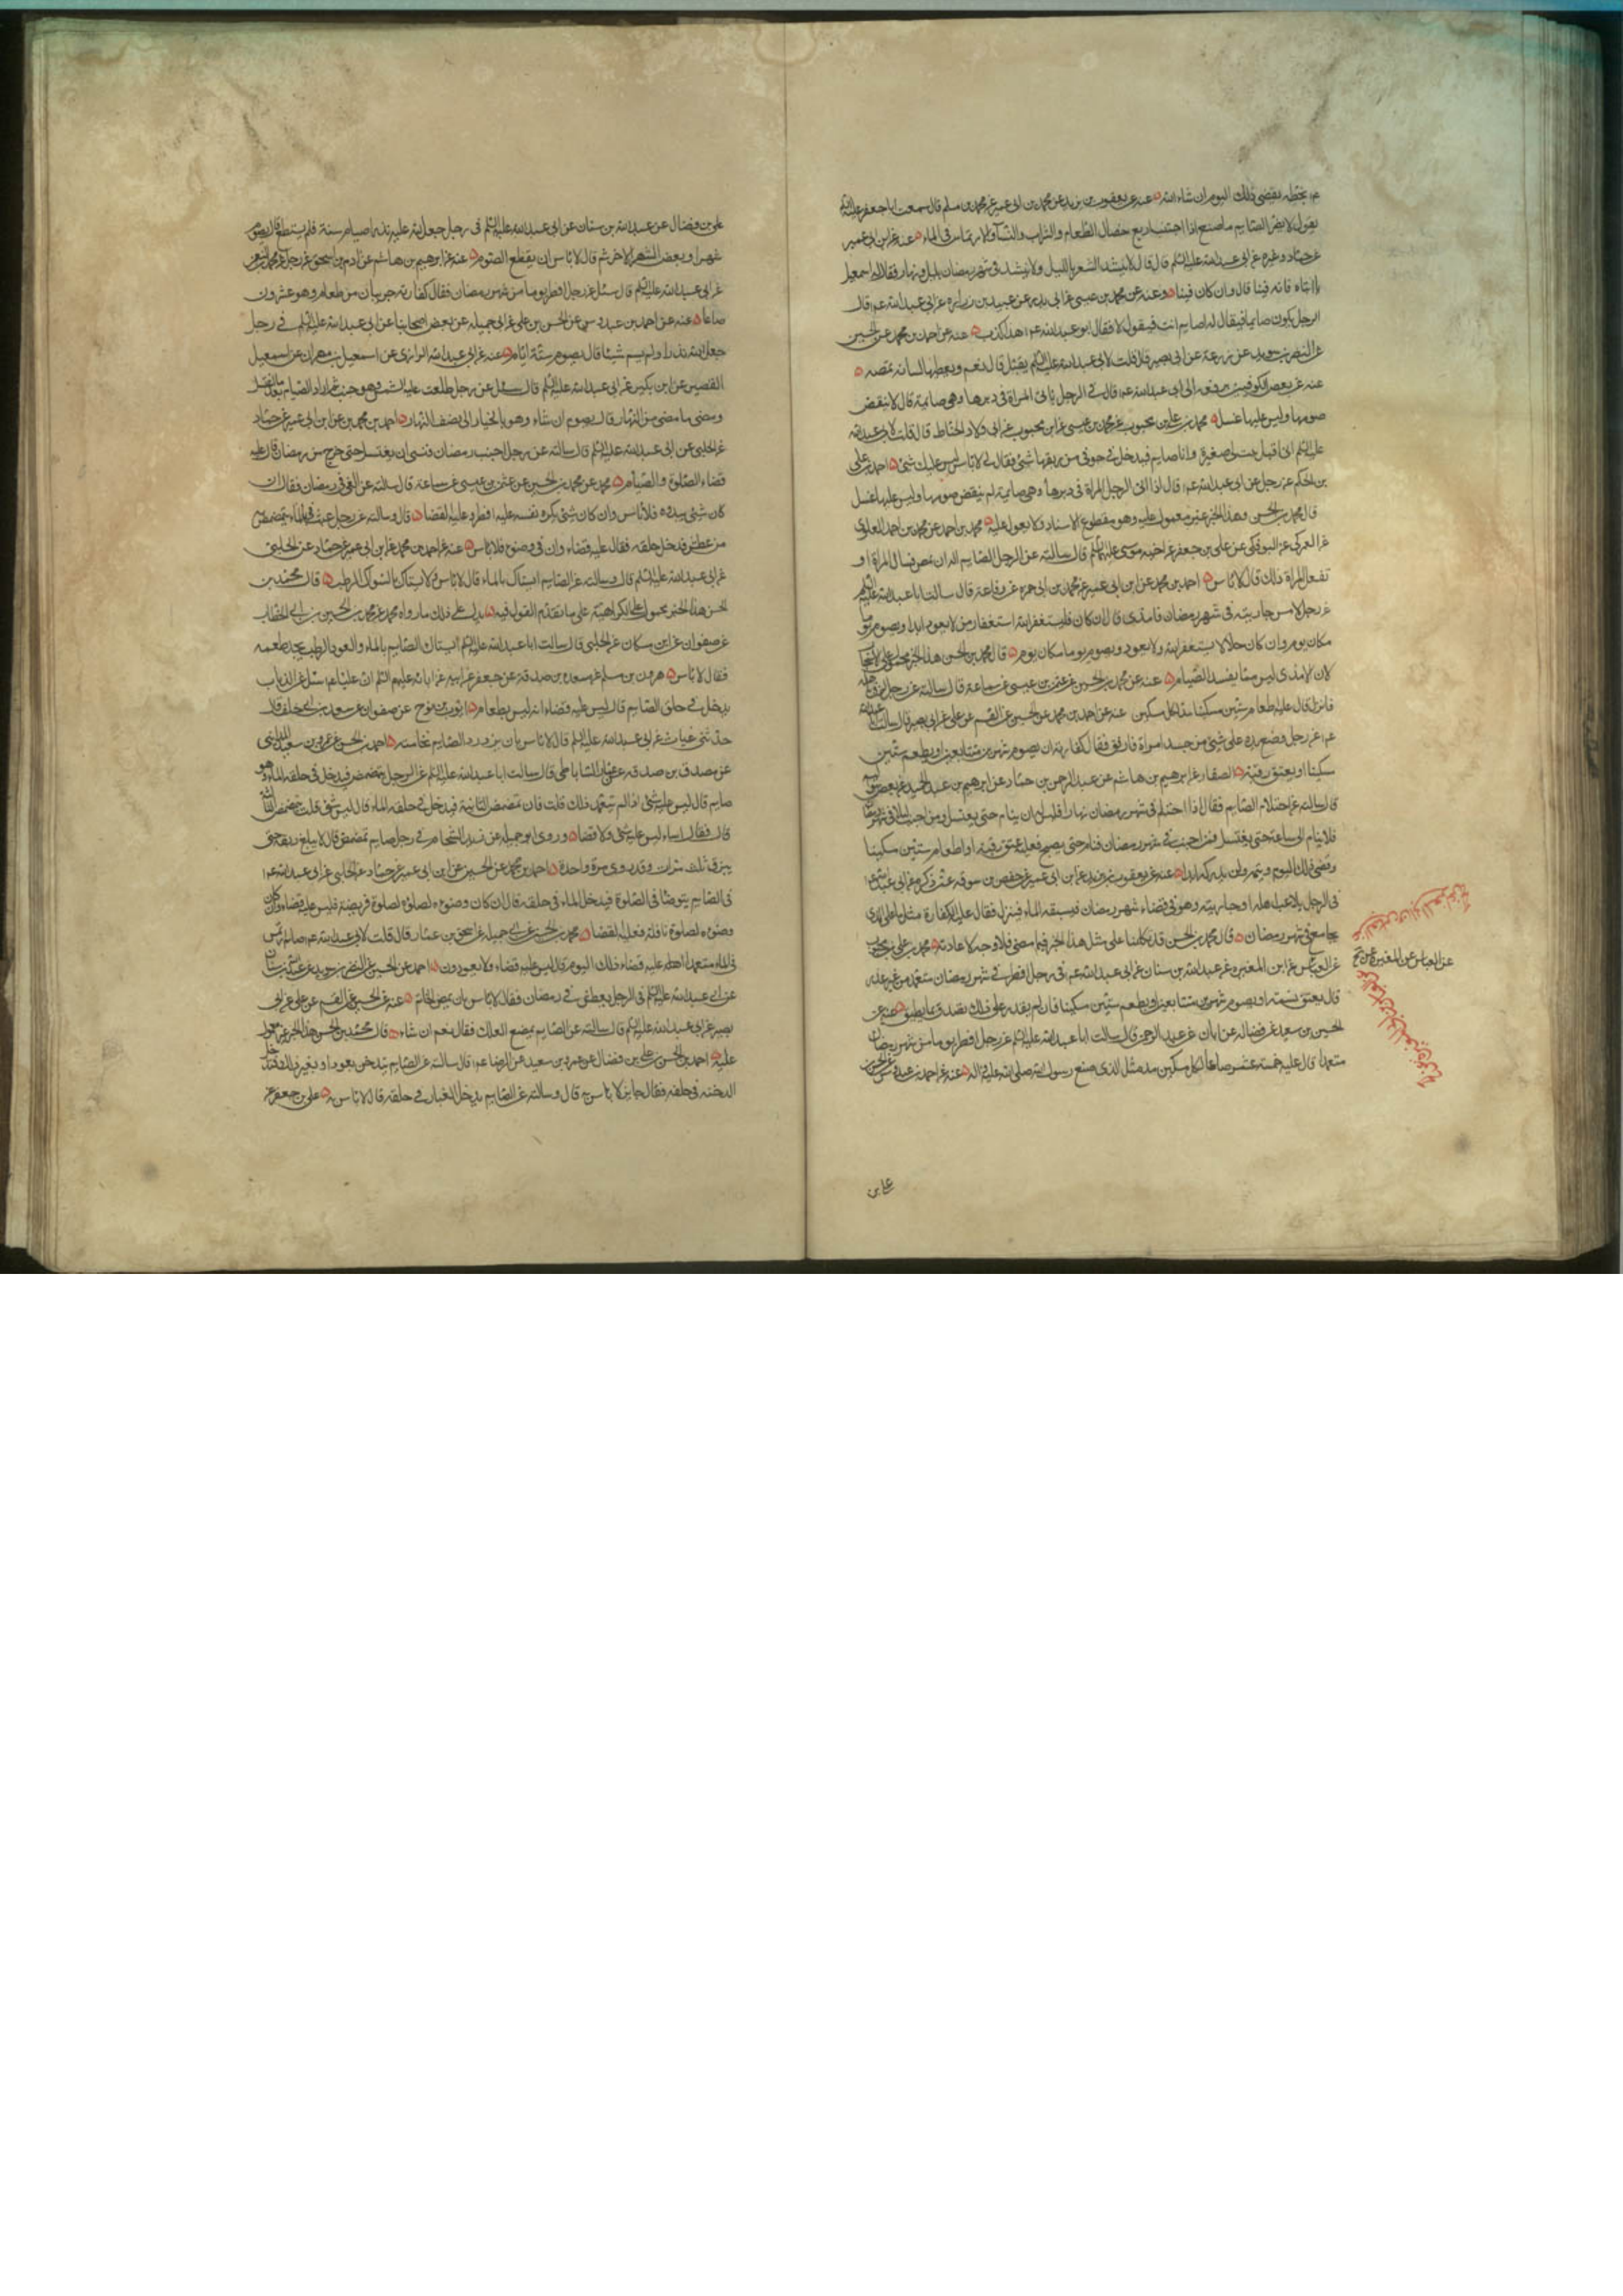 يقضي ذلك اليوم ان شاء الله عنه عن يعقوب بن يزيد عن محمد بن ابي عمير عن محمد بن مسلم قال سمعت ابا جعفر عليه السلام
يقول لا يضر الصايم ما صنع اذا اجتنب اربع خصال الطعام والشراب والنسآ والارتماس في الماء عنه عن ابن ابي عمير
عن حماد وغيره عن ابي عبد الله عليه السلم قال قال لا ينشد الشعر بالليل ولا ينشد في شهر رمضان بليل ونهار فقال له اسمعيل
يا ابتاه فانه فينا قال وان كان فينا وعنه عن محمد بن عيسى عن ابي عن عبيد بن زراره عن ابي عبد الله ع قال
الرجل يكون صايما فيقال له اصايم انت فيقول لا فقال ابو عبد الله ع هذا كذب عنه عن احمد بن محمد عن الحسين
عن النضر بن سويد عن زرعة عن ابي بصير قال قلت لابي عبد الله عليه السلم الصايم يقبل قال نعم ويعطيها لسانه تمصه
عنه عن بعض الكوفيين يرفعه الى ابي عبد الله ع قال في الرجل ياتي المراة في دبرها وهي صايمة قال لا ينقض
صومها وليس عليها غسل محمد بن علي بن محبوب عن محمد بن عيسى عن ابن محبوب عن ابي ولاد الحناط قال قلت لابي عبد الله
عليه السلم اني اقبل بنتا لي صغيرة وانا صايم فيدخل في جوفي من ريقها شئ فقال لي لا باس ليس عليك شئ احمد عن علي
بن الحكم عن رجل عن ابي عبد الله ع قال اذا اتى الرجل المراة في دبرها وهي صايمة لم ينقض صومها وليس عليها غسل
قال محمد بن الحسن وهذا الخبر غير معمول عليه وهو مقطوع الاسناد فلا يعول عليه محمد بن احمد عن محمد بن احمد العلوي
عن العمركي عن البوفكي عن علي بن جعفر عن اخيه موسى عليهما السلم قال سالته عن الرجل الصايم اله ان يمص لسان المراة او
تفعل المراة ذلك قال لا باس احمد بن محمد عن ابن ابي عمير عن محمد بن ابي حمزه عن رفاعة قال سالت ابا عبد الله عليه السلم
عن رجل لامس جاريته في شهر رمضان فامذى قال ان كان فليستغفر الله استغفار من لا يعود ابدا ويصوم يوما
مكان يوم وان كان حلالا يستغفر الله ولا يعود ويصوم يوما مكان يوم قال محمد بن الحسن هذا الخبر محمول على الاستحباب
لان الامذى ليس مما يفسد الصيام عنه عن محمد بن الحسين عن عثمن بن عيسى عن سماعة قال سالته عن رجل لزق باهله
فانزل قال عليه اطعام ستين مسكينا مد لكل مسكين عنه عن احمد بن محمد عن الحسين عن القسم عن علي عن ابي بصير قال سالت ابا عبد الله
ع عن رجل وضع يده على شئ من جسد امراة فادفق فقال كفارته ان يصوم شهرين متتابعين او يطعم ستين
مسكينا او يعتق رقبة الصفار عن ابرهيم بن هاشم عن عبد الرحمن بن حماد عن ابرهيم بن عبد الحميد عن بعض مواليه
قال سالته عن احتلام الصايم فقال اذا احتلم في شهر رمضان نهارا فليس له ان ينام حتى يغتسل ومن اجنب ليلا في شهر رمضان
فلا ينام الى ساعة حتى يغتسل فمن اجنب في شهر رمضان فنام حتى يصبح فعليه عتق رقبة او اطعام ستين مسكينا
وقضى ذلك اليوم ويتم ولن يدركه ابدا عنه عن يعقوب بن يزيد عن ابن ابي عمير عن حفص بن سوقه عمن ذكره عن ابي عبد الله ع
في الرجل يلاعب اهله او جاريته وهو في قضاء شهر رمضان فيسبقه الماء فينزل فقال عليه الكفارة مثل ما على الذي
يجامع في شهر رمضان قال محمد بن الحسن قد تكلمنا على مثل هذا الخبر فيما مضى فلا وجه لاعادته محمد بن علي بن محبوب
عن العباس عن ابن المغيره عن عبد الله بن سنان عن ابي عبد الله ع في رجل افطر في شهر رمضان متعمدا من غير علة
قال يعتق نسمة او يصوم شهرين متتابعين او يطعم ستين مسكينا فان لم يقدر على ذلك تصدق بما يطيق عنه عن
الحسين بن سعيد عن فضاله عن ابان عن عبد الرحمن قال سالت ابا عبد الله عليه السلم عن رجل افطر يوما من شهر رمضان
متعمدا قال عليه خمسة عشر صاعا لكل مسكين مد مثل الذي صنع رسول الله صلى الله عليه واله عنه عن احمد بن عبدوس عن الحسن بن
علي بن
علي بن فضال عن عبد الله بن سنان عن ابي عبد الله عليه السلم في رجل جعل لله عليه نذرا صيام سنة فلم يستطع قال يصوم
شهرا وبعض الشهر الاخر ثم قال لا باس ان يقطع الصوم عنه عن ابرهيم بن هاشم عن ادم بن اسحق عن رجل عن محمد بن النعمن
عن ابي عبد الله عليه السلم قال سئل عن رجل افطر يوما من شهر رمضان فقال كفارته جريبان من طعام وهو عشرون
صاعا عنه عن احمد بن عبدوس عن الحسن بن علي عن ابي جميله عن بعض اصحابنا عن ابي عبد الله عليه السلم في رجل
جعل لله نذرا ولم يسم شيئا قال يصوم ستة ايام عنه عن ابي عبد الله الرازي عن اسمعيل بن مهران عن اسمعيل
القصير عن ابن بكير عن ابي عبد الله عليه السلم قال سئل عن رجل طلعت عليه الشمس وهو جنب ثم اراد الصيام بعد ما اغتسل
ومضى ما مضى من النهار قال يصوم ان شاء وهو بالخيار الى نصف النهار احمد بن محمد عن ابن ابي عمير عن حماد
عن الحلبي عن ابي عبد الله عليه السلم قال سالته عن رجل اجنب في رمضان فنسي ان يغتسل حتى خرج من رمضان قال عليه
قضاء الصلوة والصيام محمد عن محمد بن الحسين عن عثمن بن عيسى عن سماعة قال سالته عن القئ في رمضان فقال ان
كان شئ يبدره فلا باس وان كان شئ يكره نفسه عليه افطر وعليه القضا قال وسالته عن رجل عبث بالماء يتمضمض به
من عطش فدخل حلقه فقال عليه قضاء وان في وضوء فلا باس عنه عن احمد بن محمد عن ابن ابي عمير عن حماد عن الحلبي
عن ابي عبد الله عليه السلم قال وسالته عن الصايم ايستاك بالماء قال لا باس ولا يستاك بالسواك الرطب قال محمد بن
الحسن هذا الخبر محمول على الكراهية على ما تقدم القول فيه يدل على ذلك ما رواه محمد عن محمد بن الحسين بن ابي الخطاب
عن صفوان عن ابن مسكان عن الحلبي قال سالت ابا عبد الله عليه السلم ايستاك الصايم بالماء والعود الرطب يجد طعمه
فقال لا باس هرون بن مسلم عن مسعده بن صدقة عن جعفر عن ابيه عن ابائه عليهم السلم ان عليا ع سئل عن الذباب
يدخل في حلق الصايم قال ليس عليه قضاء انه ليس بطعام ايوب بن نوح عن صفوان عن سعد بن ابي خلف قال
حدثني غياث عن ابي عبد الله عليه السلم قال لا باس بان يزدرد الصايم نخامته احمد بن الحسن عن عمرو بن سعيد المدايني
عن مصدق بن صدقه عن عمار الساباطي قال سالت ابا عبد الله عليه السلم عن الرجل يتمضمض فيدخل في حلقه الماء وهو
صايم قال ليس عليه شئ اذا لم يتعمد ذلك قلت فان تمضمض الثانية فيدخل في حلقه الماء قال ليس شئ قلت تمضمض الثالثة
قال فقال اساء ليس عليه شئ ولا قضا وروى ابو جميله عن زيد الشحام في رجل صايم تمضمض قال لا يبلع ريقه حتى
يبزق ثلث مرات وقد روى مرة واحدة احمد بن محمد عن الحسين عن ابن ابي عمير عن حماد عن الحلبي عن ابي عبد الله ع
في الصايم يتوضا في الصلوة فيدخل الماء في حلقه قال ان كان وضوءه لصلوة فريضة فليس عليه قضاء وان كان
وضوءه لصلوة نافلة فعليه القضا محمد بن الحسين عن ابي جميله عن اسحق بن عمار قال قلت لابي عبد الله ع صايم ارتمس
في الماء متعمدا اعليه قضاء ذلك اليوم قال ليس عليه قضاء ولا يعودون احمد عن الحسين عن النضر بن سويد عن عبد الله بن سنان
عن ابي عبد الله عليه السلم في الرجل يعطش في رمضان فقال لا باس بان يمص الخاتم عنه عن الحسين عن القسم عن علي عن ابي
بصير عن ابي عبد الله عليه السلم قال سالته عن الصايم يمضغ العلك فقال نعم ان شاء قال محمد بن الحسن هذا الخبر غير معمول
عليه احمد بن الحسن بن علي بن فضال عن عمرو بن سعيد عن الرضا ع قال سالته عن الصايم يتدخن بعود او بغير ذلك فتدخل
الدخنه في حلقه فقال جايز لا باس به قال وسالته عن الصايم يدخل الغبار في حلقه قال لا باس به علي بن جعفر عن